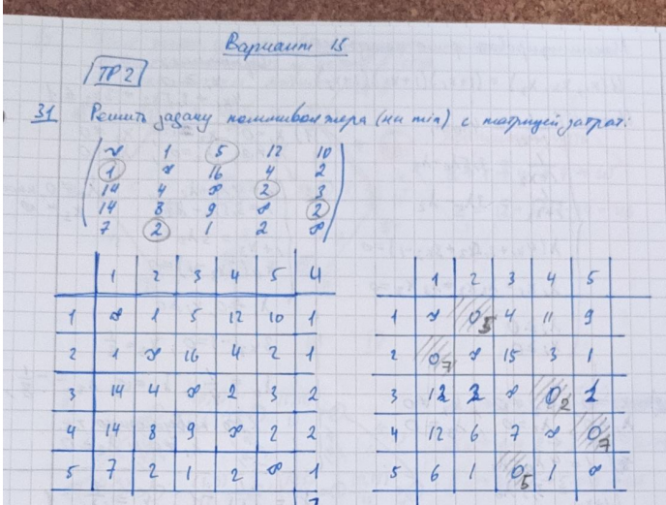 Вариант 15
ТР2
31 Решить задачу коммивояжера (на min) с матрицей затрат:
∞ 1 5 12 10
1 ∞ 16 4 2
14 4 ∞ 2 3
14 8 9 ∞ 2
7 2 1 2 ∞
1 2 3 4 5 4
1 ∞ 1 5 12 10 1
2 1 ∞ 16 4 2 1
3 14 4 ∞ 2 3 2
4 14 8 9 ∞ 2 2
5 7 2 1 2 ∞ 1
1 2 3 4 5
1 ∞ 0 5 4 11 9
2 0 7 ∞ 15 3 1
3 12 2 ∞ 0 2 1
4 12 6 7 ∞ 0 7
5 6 1 0 5 1 ∞